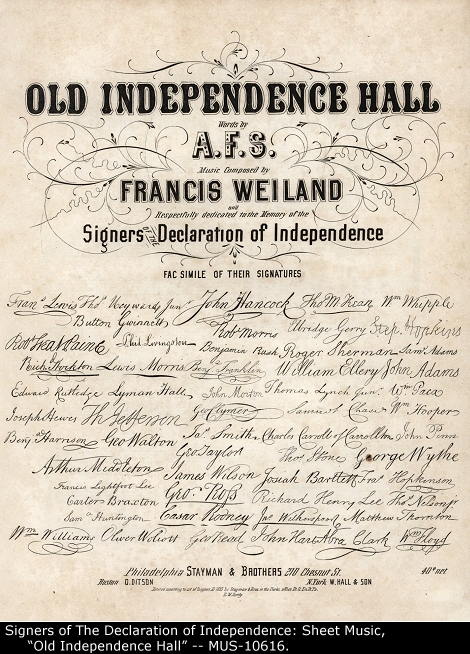 OLD INDEPENDENCE HALL
Words by
A.F.S.
Music Composed by
FRANCIS WEILAND
and
Respectfully dedicated to the Memory of the
Signers OF THE Declaration of Independence
FAC SIMILE OF THEIR SIGNATURES
Fran.s Lewis Tho.s Heyward Junr. John Hancock Tho M:Kean Wm Whipple
Button Gwinnett Robt Morris Elbridge Gerry Step. Hopkins
Robt Treat Paine Phil. Livingston Benjamin Rush Roger Sherman Saml Adams
Richd Stockton Lewis Morris Benj. Franklin William Ellery John Adams
Edward Rutledge Lyman Hall John Morton Thomas Lynch Junr. Wm Paca
Joseph Hewes Th Jefferson Geo Clymer Samuel Chase Wm Hooper
Benj Harrison Geo Walton Jas. Smith Charles Carroll of Carrollton John Penn
Geo Taylor Thos Stone George Wythe
Arthur Middleton James Wilson Josiah Bartlett Fras Hopkinson
Francis Lightfoot Lee Geo. Ross Richard Henry Lee Thos Nelson jr
Carter Braxton
Saml Huntington Cæsar Rodney Jno Witherspoon Matthew Thornton
Wm Williams Oliver Wolcott Geo Read John Hart Abra Clark Wm Floyd
Philadelphia STAYMAN & BROTHERS 210 Chesnut St. 40cts net
Boston O. DITSON N. York W. HALL & SON
Signers of The Declaration of Independence: Sheet Music,
"Old Independence Hall" -- MUS-10616.